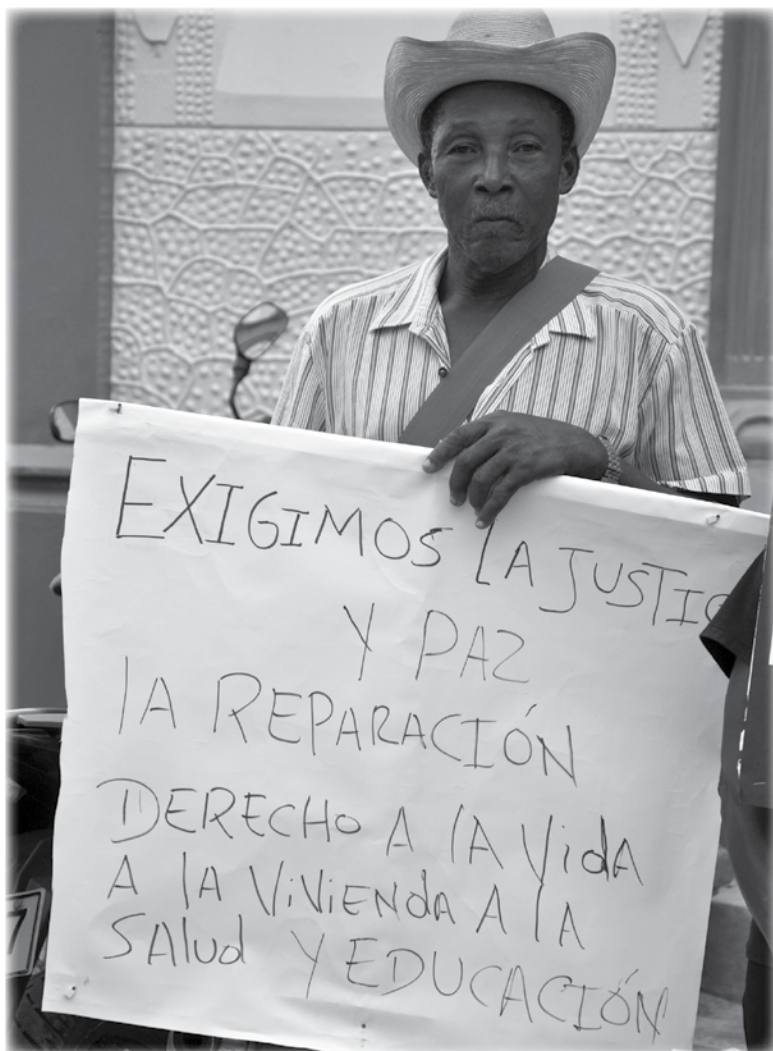 EXIGIMOS LA JUSTIC
Y PAZ
LA REPARACIÓN
DERECHO A LA VidA
A LA ViViENdA A LA
SAlud Y EDUCACIÓN
7